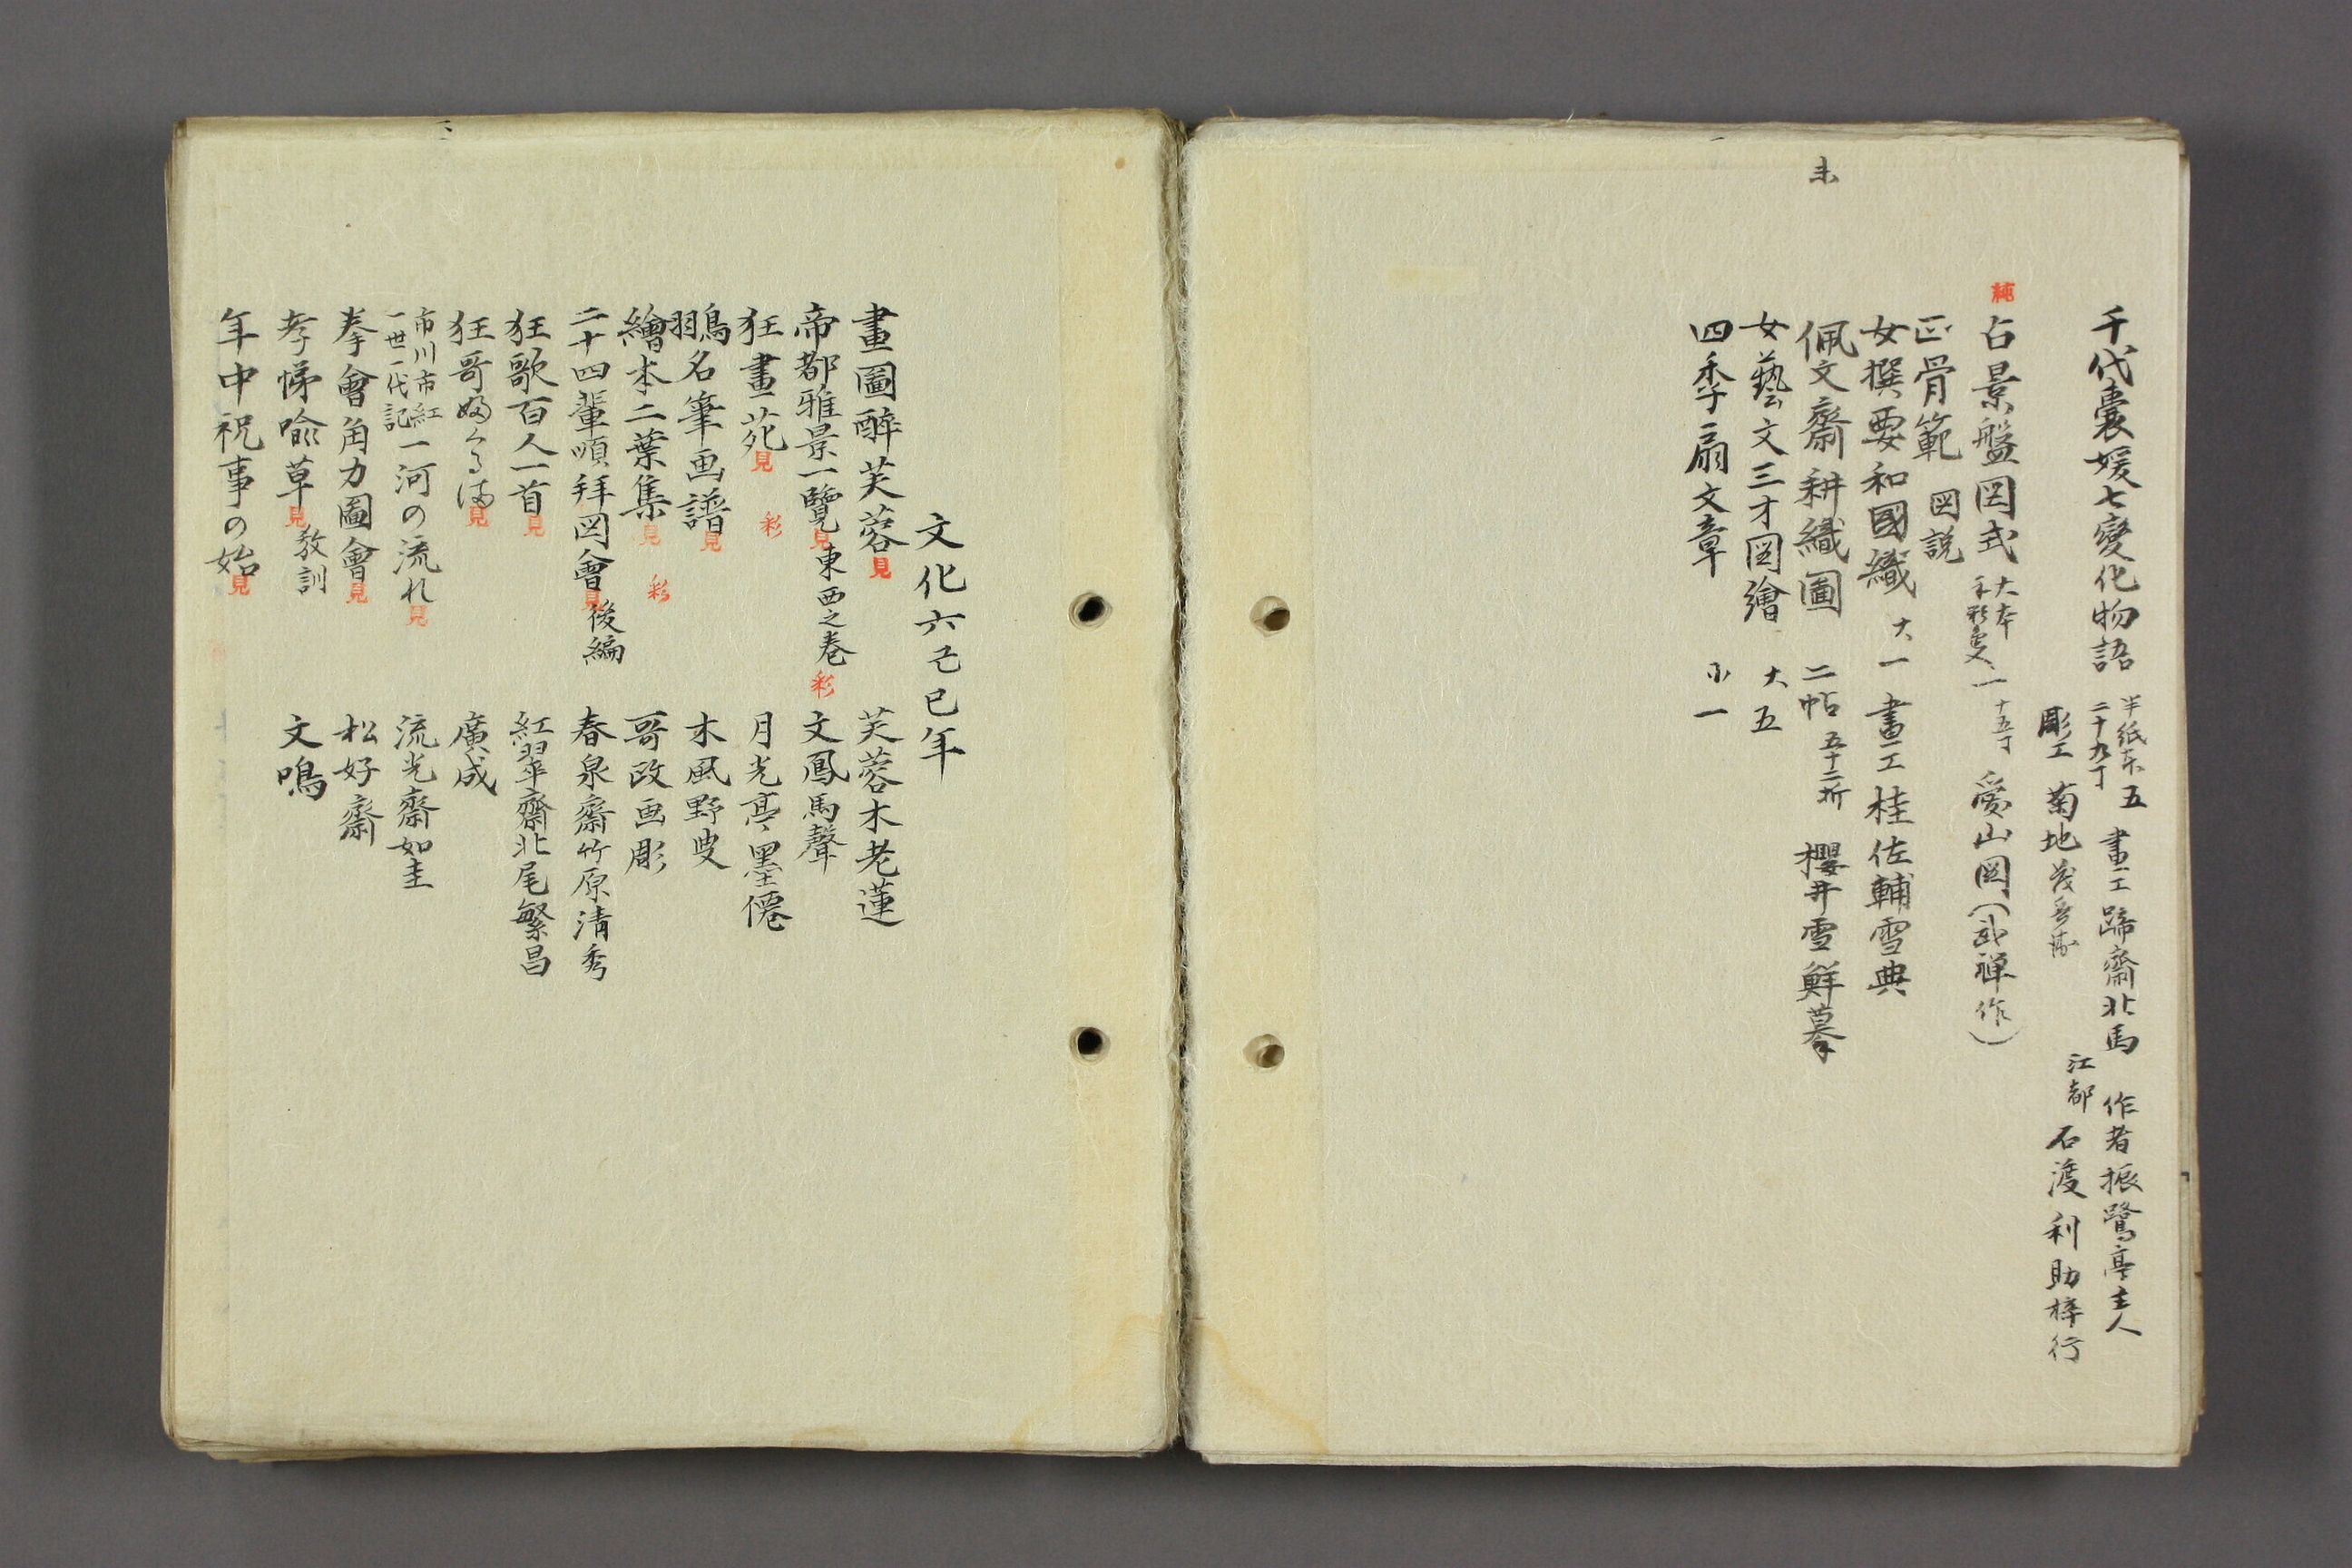 未
千代曩媛七變化物語 半紙本 二十九丁 五 畫工 蹄齋北馬 作者振鷺亭主人
彫工 菊地茂兵衛 江都 石渡利助梓行
純
占景盤図式 大本 一 十五丁 愛山図(武禅作)
正骨範 図説
女撰要和國織 大一 畫工桂佐輔雪典
佩文齋耕織圖 二帖 五十二折 櫻井雪鮮摹
女藝文三才図繪 大五
四季扇文章 小一
文化六己巳年
畫圖醉芙蓉 見 芙蓉木老蓮
帝都雅景一覽 見 東西之巻 彩 文鳳馬聲
狂畫苑 見 彩 月光亭墨僊
翎名筆画譜 見 木風野叟
繪本二葉集 見 彩 哥政画彫
二十四輩順拜図會 見 後編 春泉齋竹原清秀
狂歌百人一首 見 紅翠齋北尾繁昌
狂哥 見 廣成
市川市紅 一世一代記 一河の流れ 見 流光齋如圭
拳會角力圖會 見 松好齋
孝悌喩草 見 教訓 文鳴
年中祝事の始 見